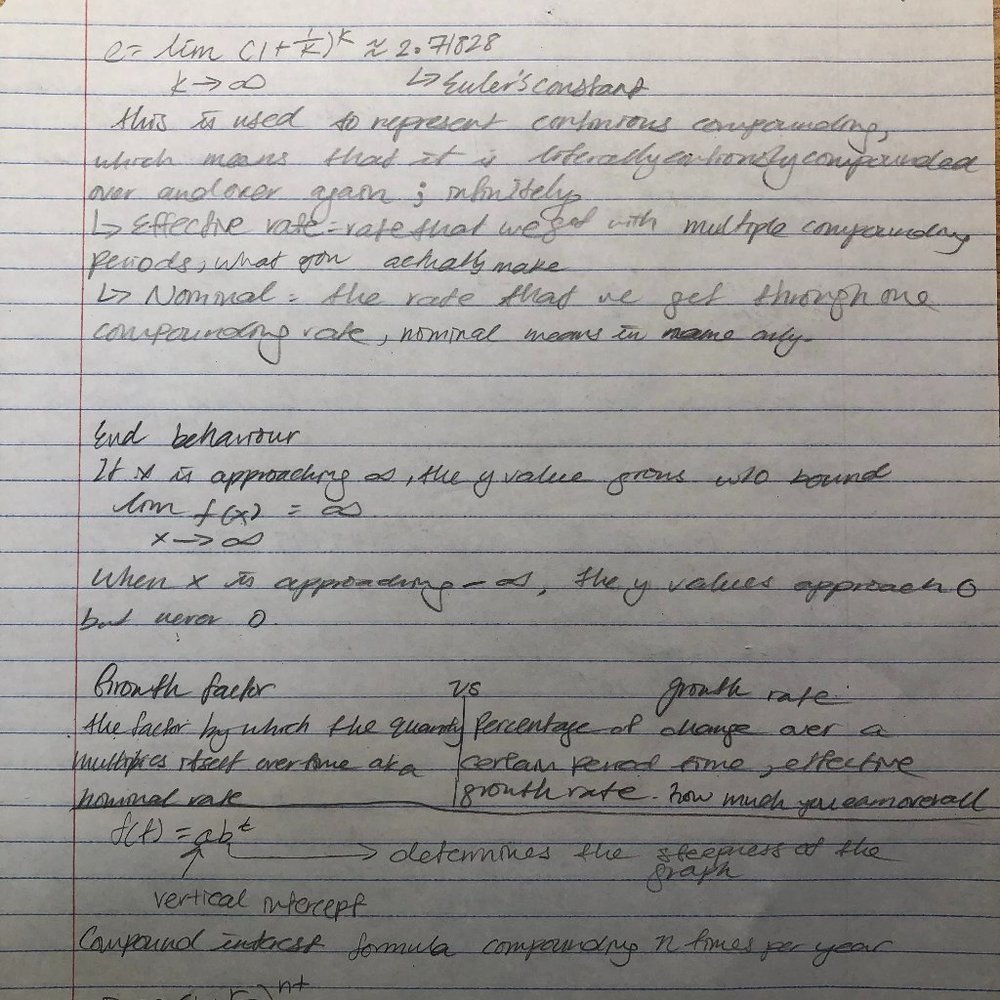 e = lim (1 + 1/k)^k ≈ 2.71828
k → ∞ ↳ Euler's constant
this is used to represent continious compounding,
which means that it is literally compounded
over and over again ; infinitely
↳ Effective rate - rate that we get with multiple compounding
periods, what you actually make
↳ Nominal = the rate that we get through one
compounding rate, nominal means in name only.
End behaviour
If x is approaching ∞, the y value grows w/o bound
lim f(x) = ∞
x → ∞
When x is approaching - ∞, the y values approach 0
but never 0.
Growth factor vs growth rate
the factor by which the quantity
multiplies itself over time aka
nominal rate
Percentage of change over a
certain period time, effective
growth rate. how much you earn overall
f(t) = ab^t
→ determines the steepness of the
graph
vertical intercept
Compound interest formula compounding n times per year